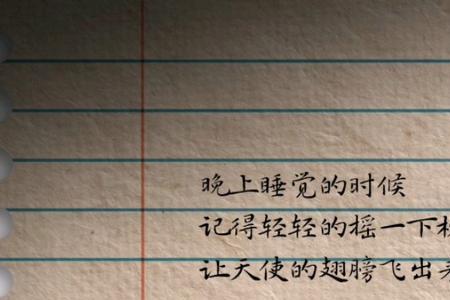 晚上睡觉的时候
记得轻轻的摇一下
让天使的翅膀飞出